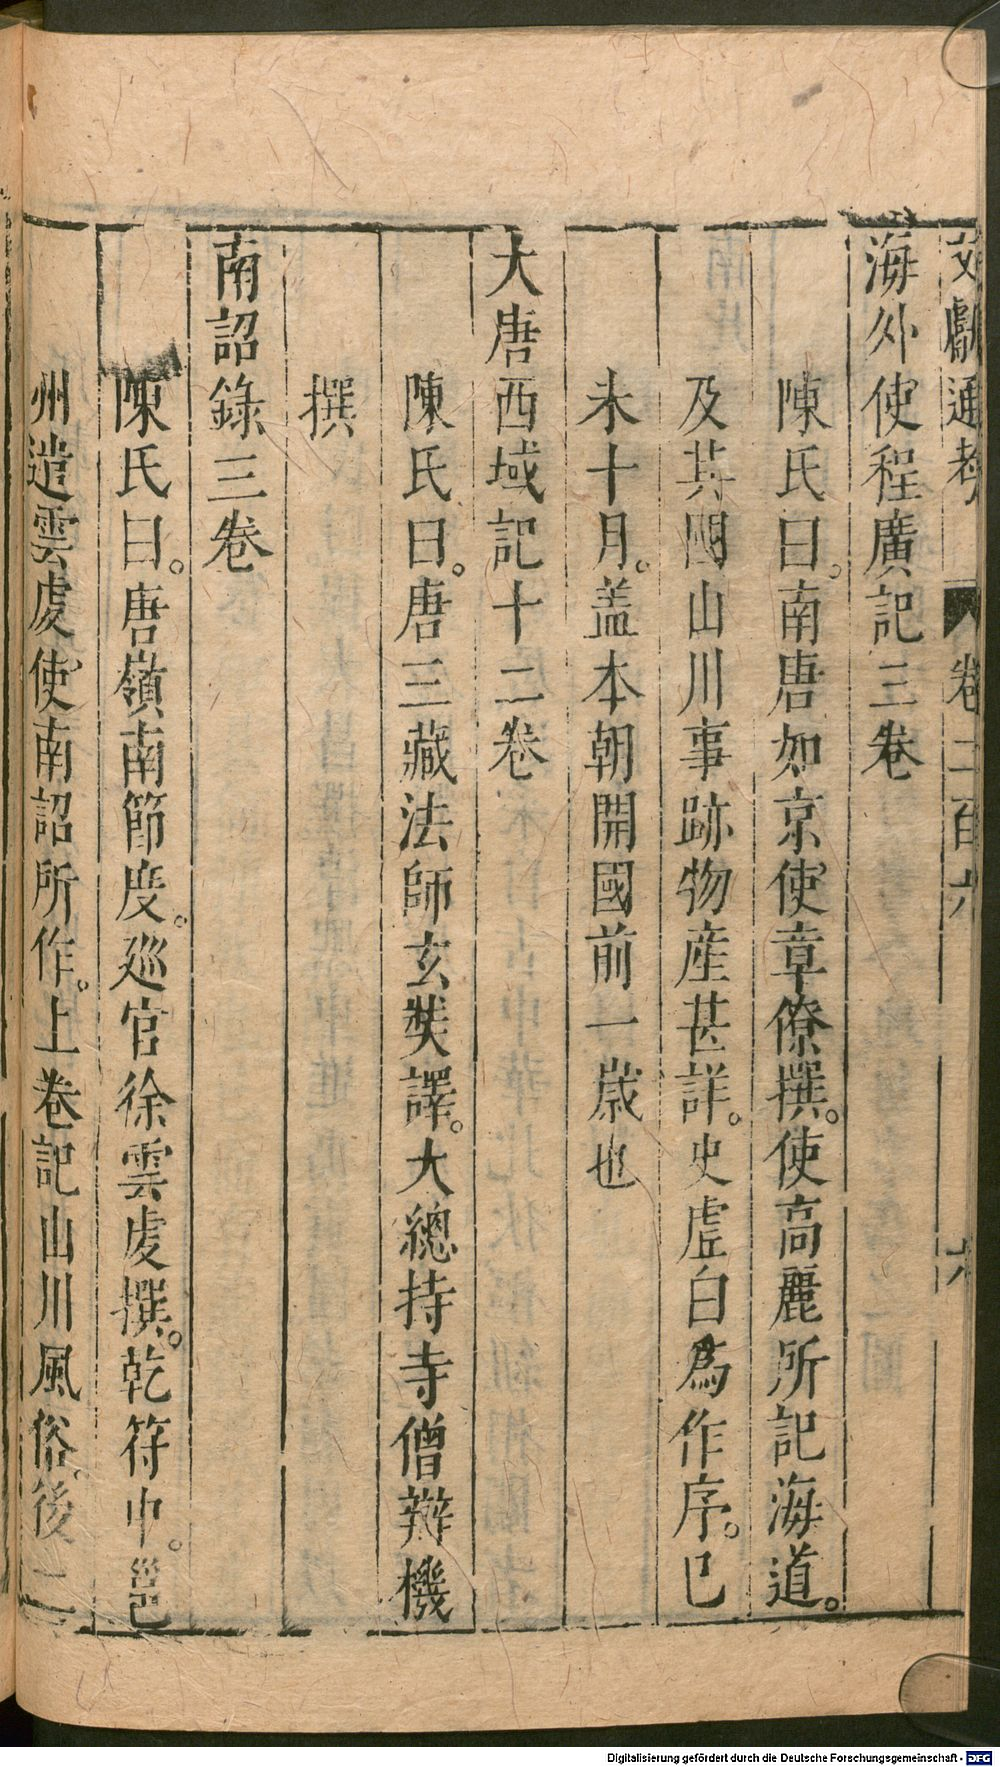 文獻通考 卷二百六 六
海外使程廣記三卷
陳氏曰。南唐如京使章僚撰。使高麗所記海道。
及其國山川事跡物產甚詳。史虛白為作序。已
未十月。盖本朝開國前一歲也
大唐西域記十二卷
陳氏曰。唐三藏法師玄奘譯。大總持寺僧辯機
撰
南詔錄三卷
陳氏曰。唐嶺南節度。巡官徐雲虔撰。乾符中。邕
州遣雲虔使南詔所作。上卷記山川風俗。後二
Digitalisierung gefördert durch die Deutsche Forschungsgemeinschaft - DFG